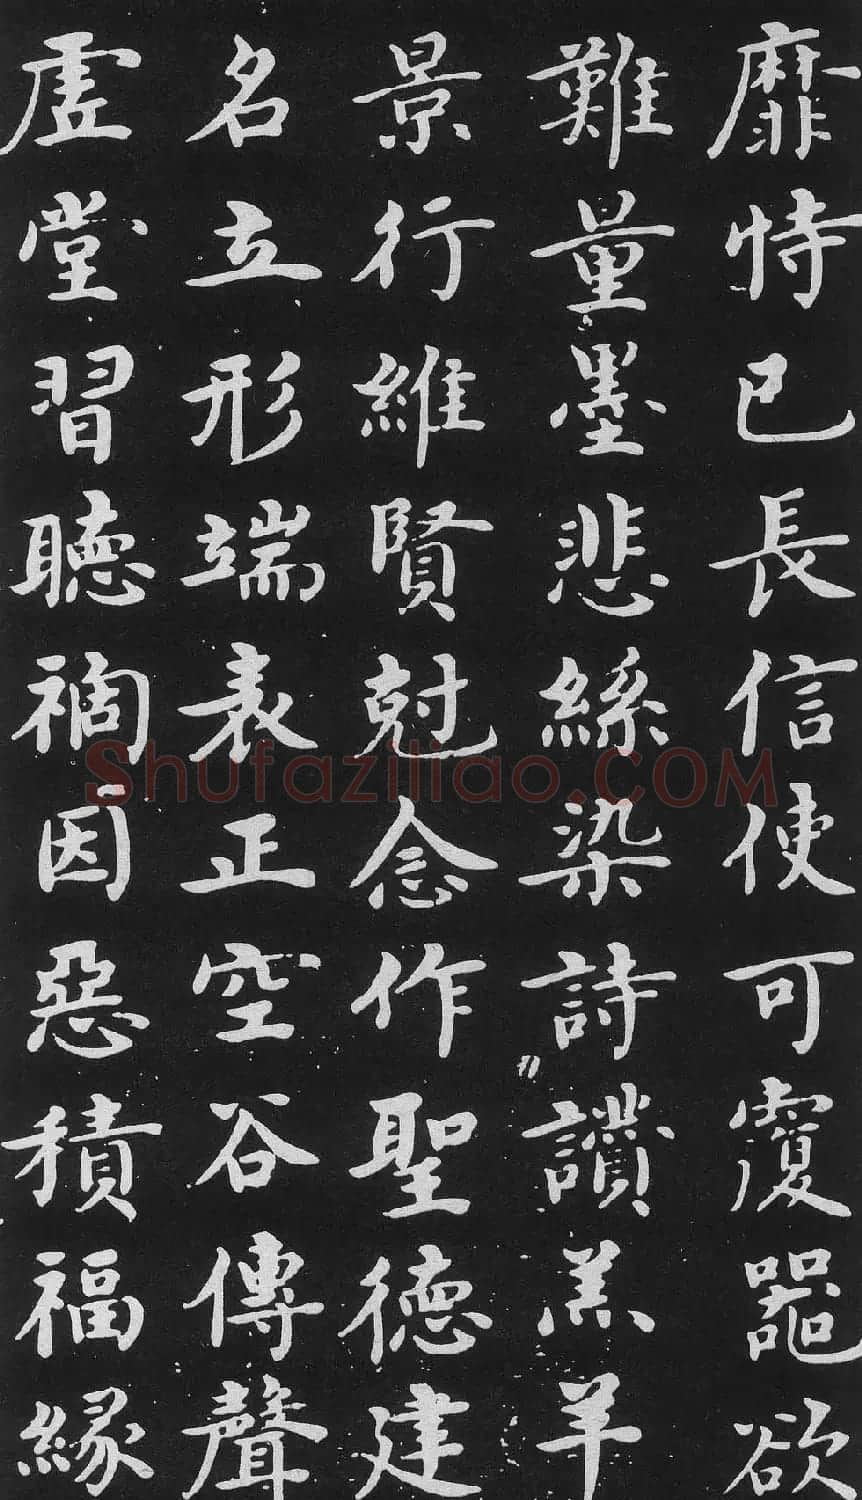 靡恃已長信使可覆器欲
難量墨悲絲染詩讚羔羊
景行維賢剋念作聖德建
名立形端表正空谷傳聲
虛堂習聽禍因惡積福緣
Shufaziliao.COM